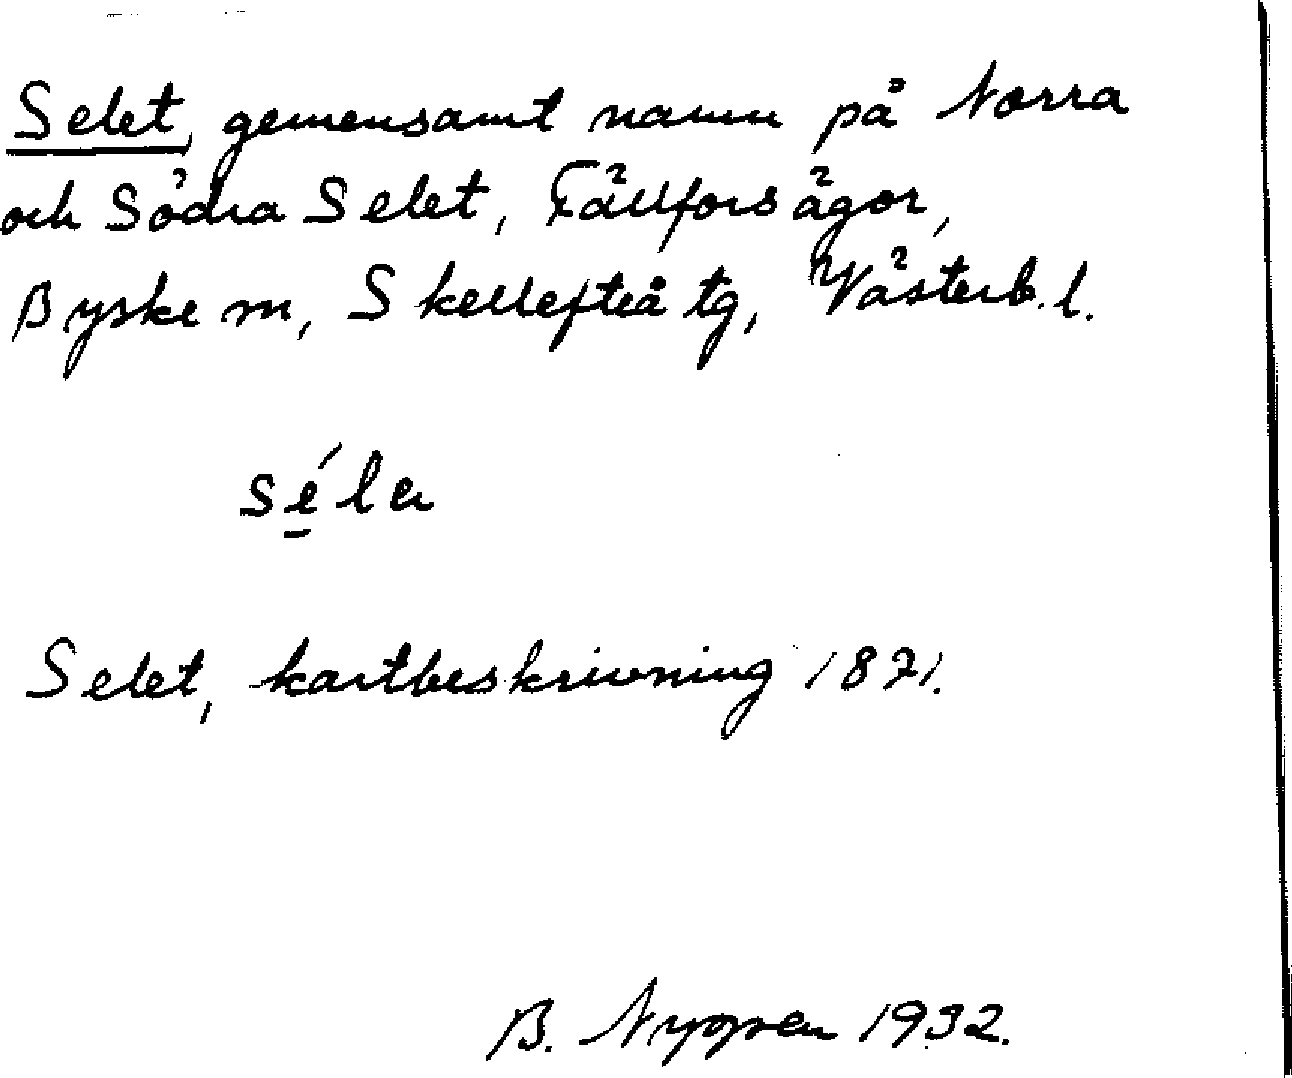 Selet, gemensamt namn på Norra
och Södra Selet, Fällfors ägor,
Byske sn, Skellefteå tg, Västerb. l.
séla
Selet, kartbeskrivning 1871.
B. 1932.